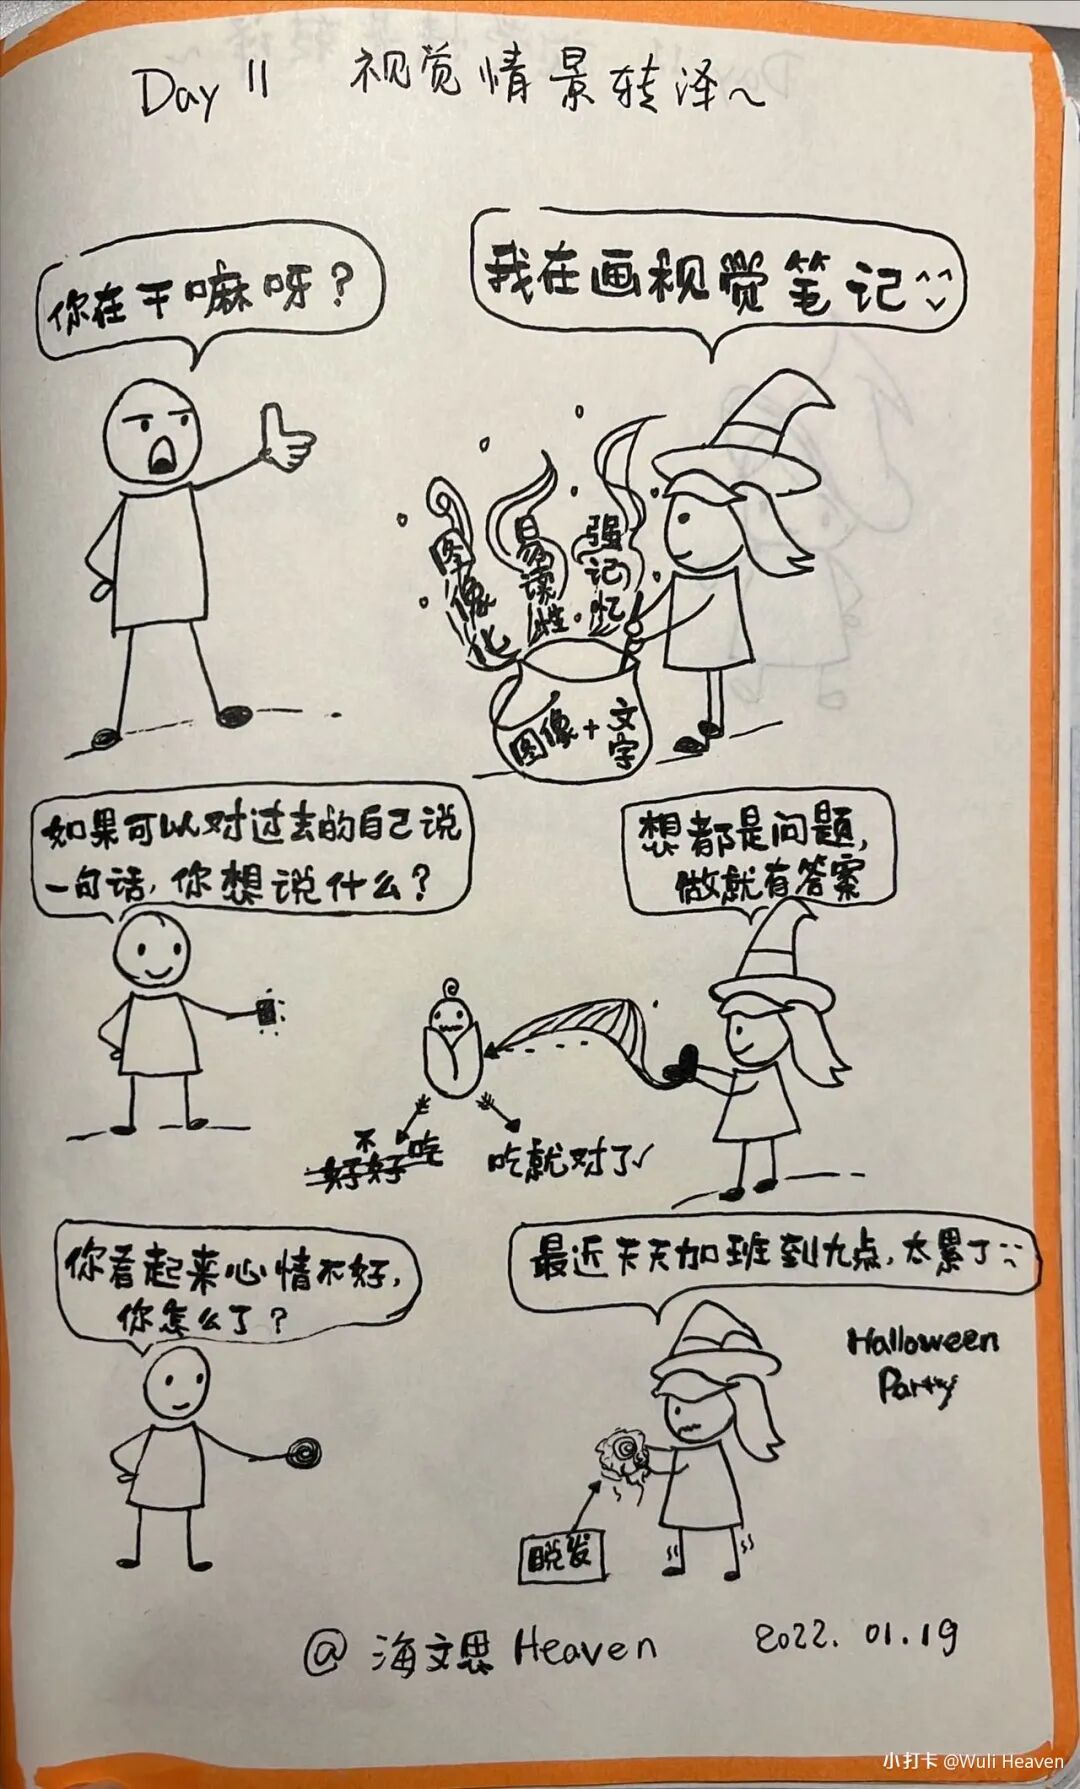 Day 11 视觉情景转译~
你在干嘛呀？
我在画视觉笔记
图像化
易读性
强记忆
图像+文字
如果可以对过去的自己说
一句话，你想说什么？
想都是问题，
做就有答案
不
好好吃
吃就对了√
你看起来心情不好，
你怎么了？
最近天天加班到九点，太累了
Halloween
Party
脱发
@海文思 Heaven 2022.01.19
小打卡 @Wuli Heaven